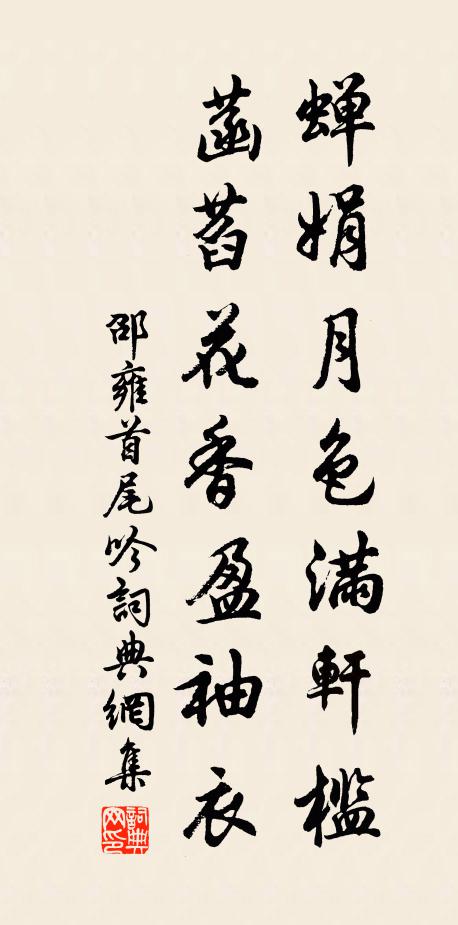 蝉娟月色滿軒檻
菡萏花香盈袖衣
邵雍首尾吟詞典網集
詞典网印